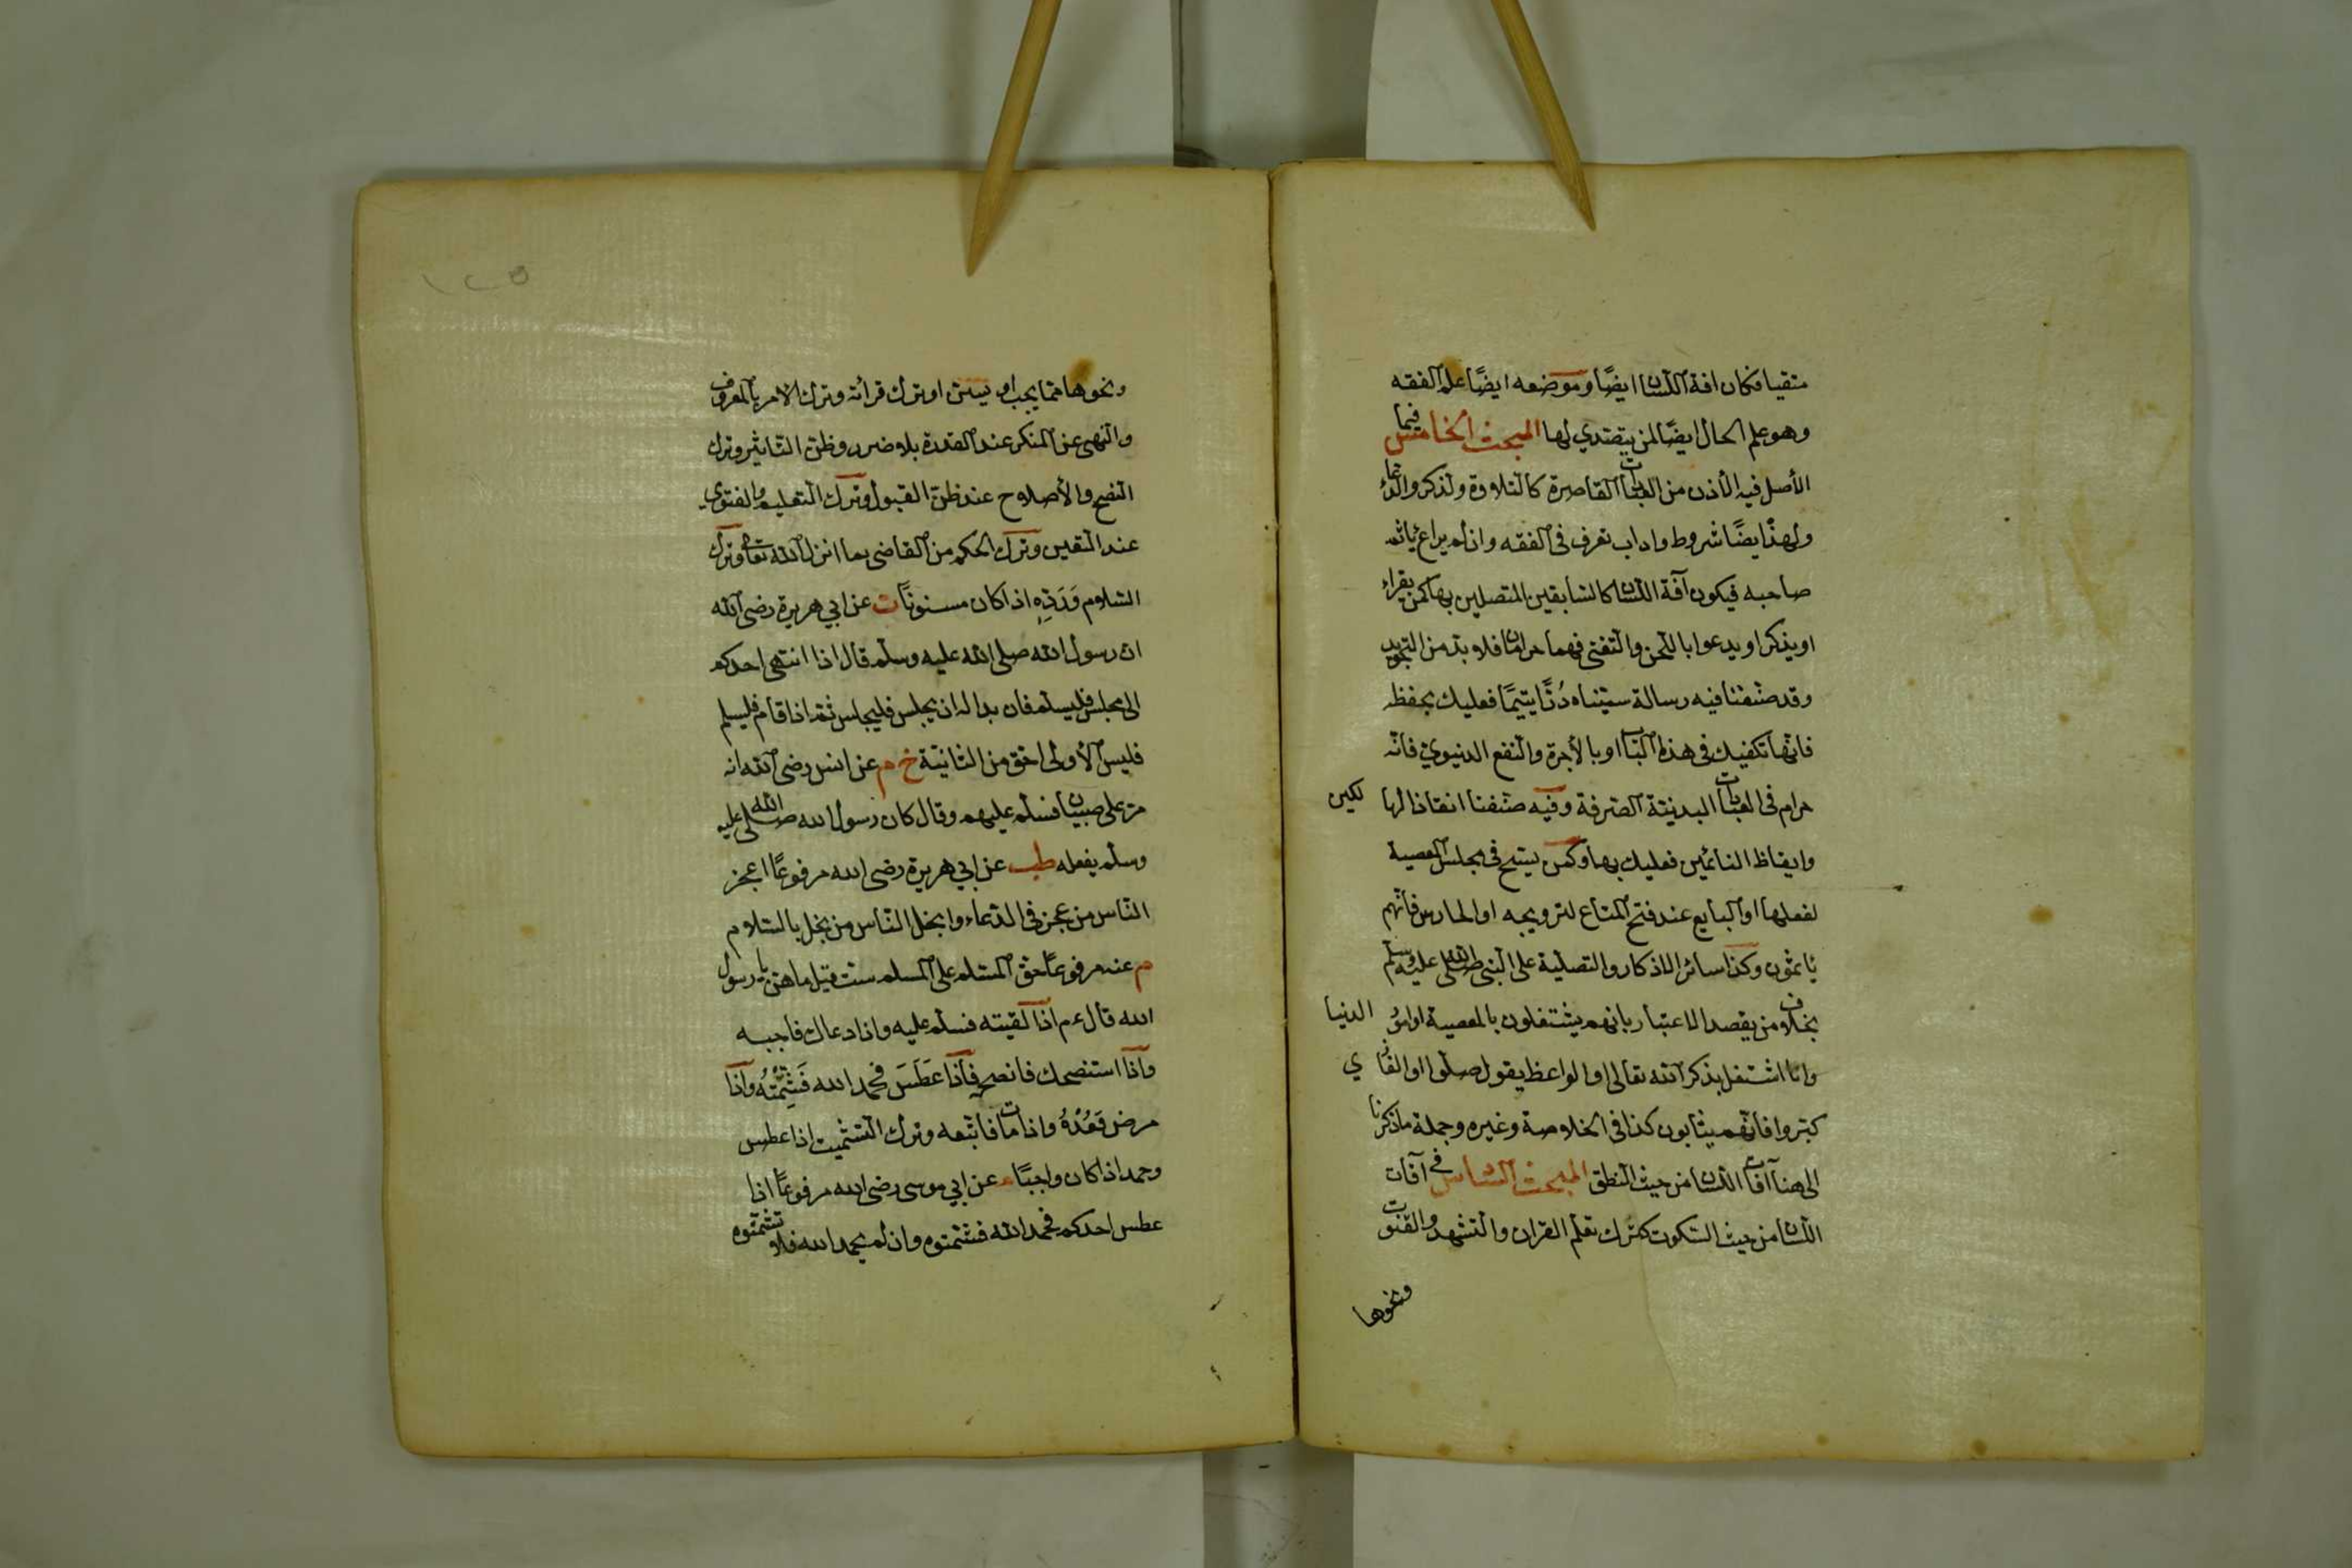 متقيا فكان افة اللسان ايضًا وموضعه ايضًا علم الفقه
وهو علم الحال ايضًا لمن يتصدي لها المبحث الخامس فيما
الأصل فيه الأذن من العبادات القاصرة كالتلاوة والذكر والدعاء
ولهذا ايضًا شروط واداب تعرف فى الفقه وان لم يراع يأثم
صاحبه فيكون آفة اللسان كالسابقين المتصلين بها كمن يقراء
او يذكر او يدعوا باللحن والتغنى فهما حرامان فلا بد من التجويد
وقد صنفنا فيه رسالة سميناه دُرًّا يتيمًا فعليك بحفظه
فانها تكفيك فى هذا الباب او بالأجرة والنفع الدنيوي فانه
حرام فى العبادات البدنية الصرفة وفيه صنفنا انقاذ الهالكين
وايقاظ النائمين فعليك بها وكمن يسبح فى مجلس المعصية
لفعلها او البايع عند فتح المتاع لترويجه او الحارس فانهم
يأثمون وكذا سائر الاذكار والتصلية على النبى صلى الله عليه وسلم
بخلاف من يقصد الاعتبار بانهم يشتغلون بالمعصية او امور الدنيا
وانا اشتغل بذكر الله تعالى او الواعظ يقول صلوا او الغازي
كبروا فانهم يثابون كذا فى الخلاصة وغيره وجملة ما ذكرنا
الى هنا آفات اللسان من حيث النطق المبحث السادس فى آفات
اللسان من حيث السكوت كترك تعلم القران والتشهد والقنوت
ونحوها
١٢٥
ونحوها مما يجب او يسن او ترك قرائته وترك الامر بالمعروف
والنهى عن المنكر عند القدرة بلا ضرر وظن التاثير وترك
النصح والأصلاح عند ظن القبول وترك التعليم والفتوي
عند التعين وترك الحكم من القاضى بما انزل الله تعالى وترك
السلام وَرَدِّهِ اذا كان مسنونًا ت عن ابي هريرة رضى الله
ان رسول الله صلى الله عليه وسلم قال اذا انتهى احدكم
الى مجلس فليسلم فان بدا له ان يجلس فليجلس ثم اذا قام فليسلم
فليس الأولى احق من الثانية خ م عن انس رضى الله انه
مر على صبيان فسلم عليهم وقال كان رسول الله صلى الله عليه
وسلم يفعله طب عن ابي هريرة رضى الله مرفوعًا اعجز
الناس من عجز فى الدعاء وابخل الناس من بخل بالسلام
م عنه مرفوعًا حق المسلم على المسلم ست قيل ما هن يا رسول
الله قال ءم اذا لقيته فسلم عليه واذا دعاك فاجبه
واذا استنصحك فانصح فاذا عَطَسَ فحمد الله فَشَمِّتْهُ واذا
مرض فَعُدْهُ واذا مات فاتبعه وترك التشميت اذا عطس
وحمد اذا كان واجبًا م عن ابي موسى رضى الله مرفوعًا اذا
عطس احدكم فحمد الله فشمتوه وان لم يحمد الله فلا تشمتوه